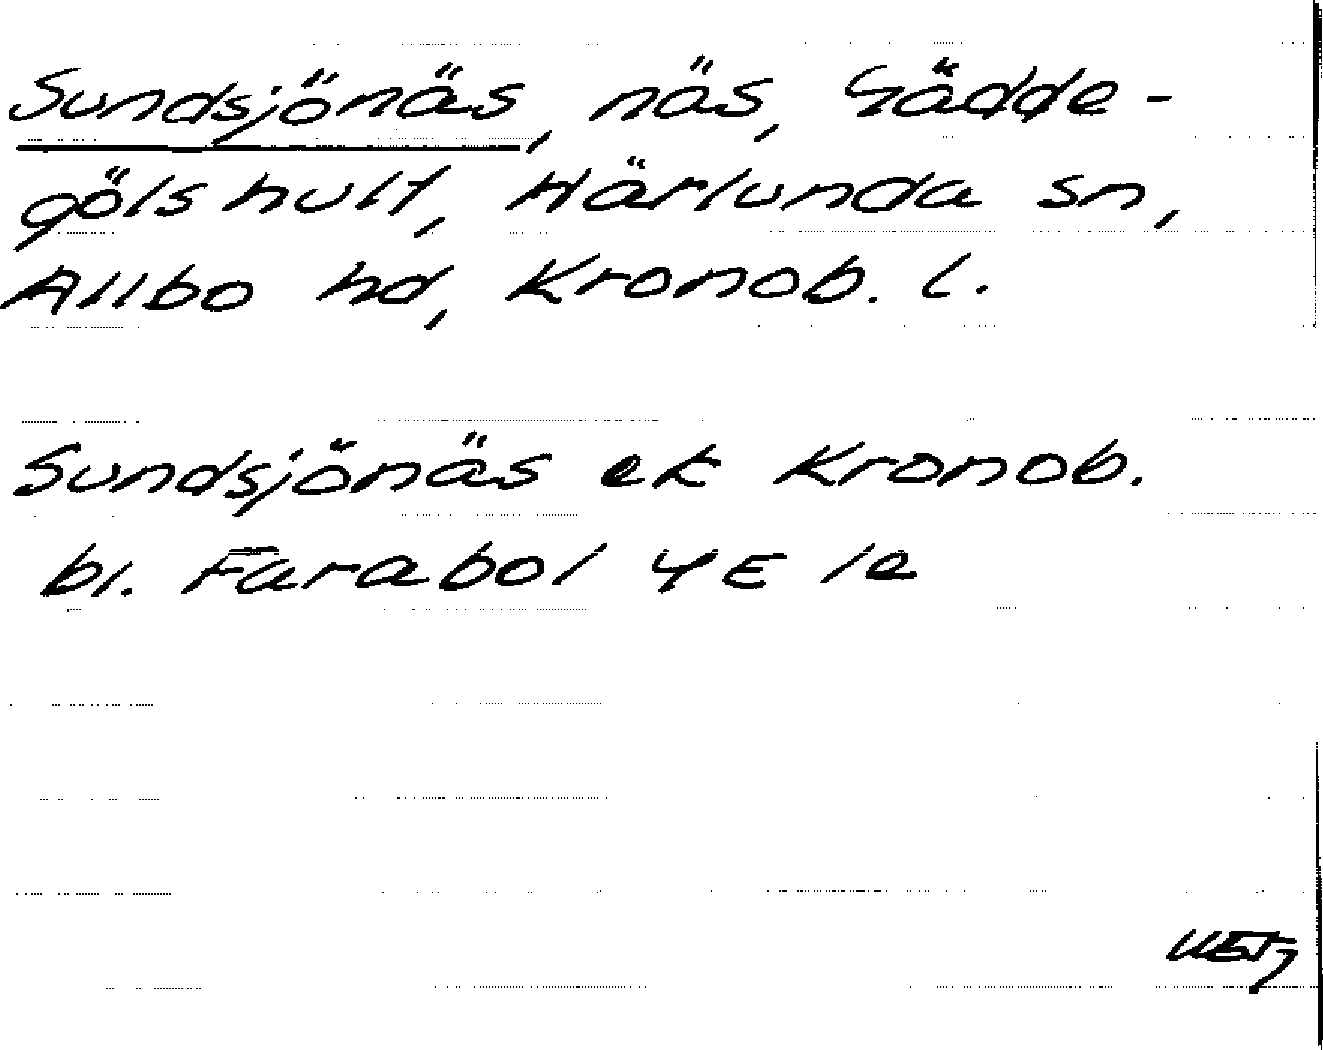 Sundsjönäs, näs, Gädde-
göls hult, Härlunda sn,
Allbo hd, Kronob. l.
Sundsjönäs ek Kronob.
bl. Farabol 4E 1e